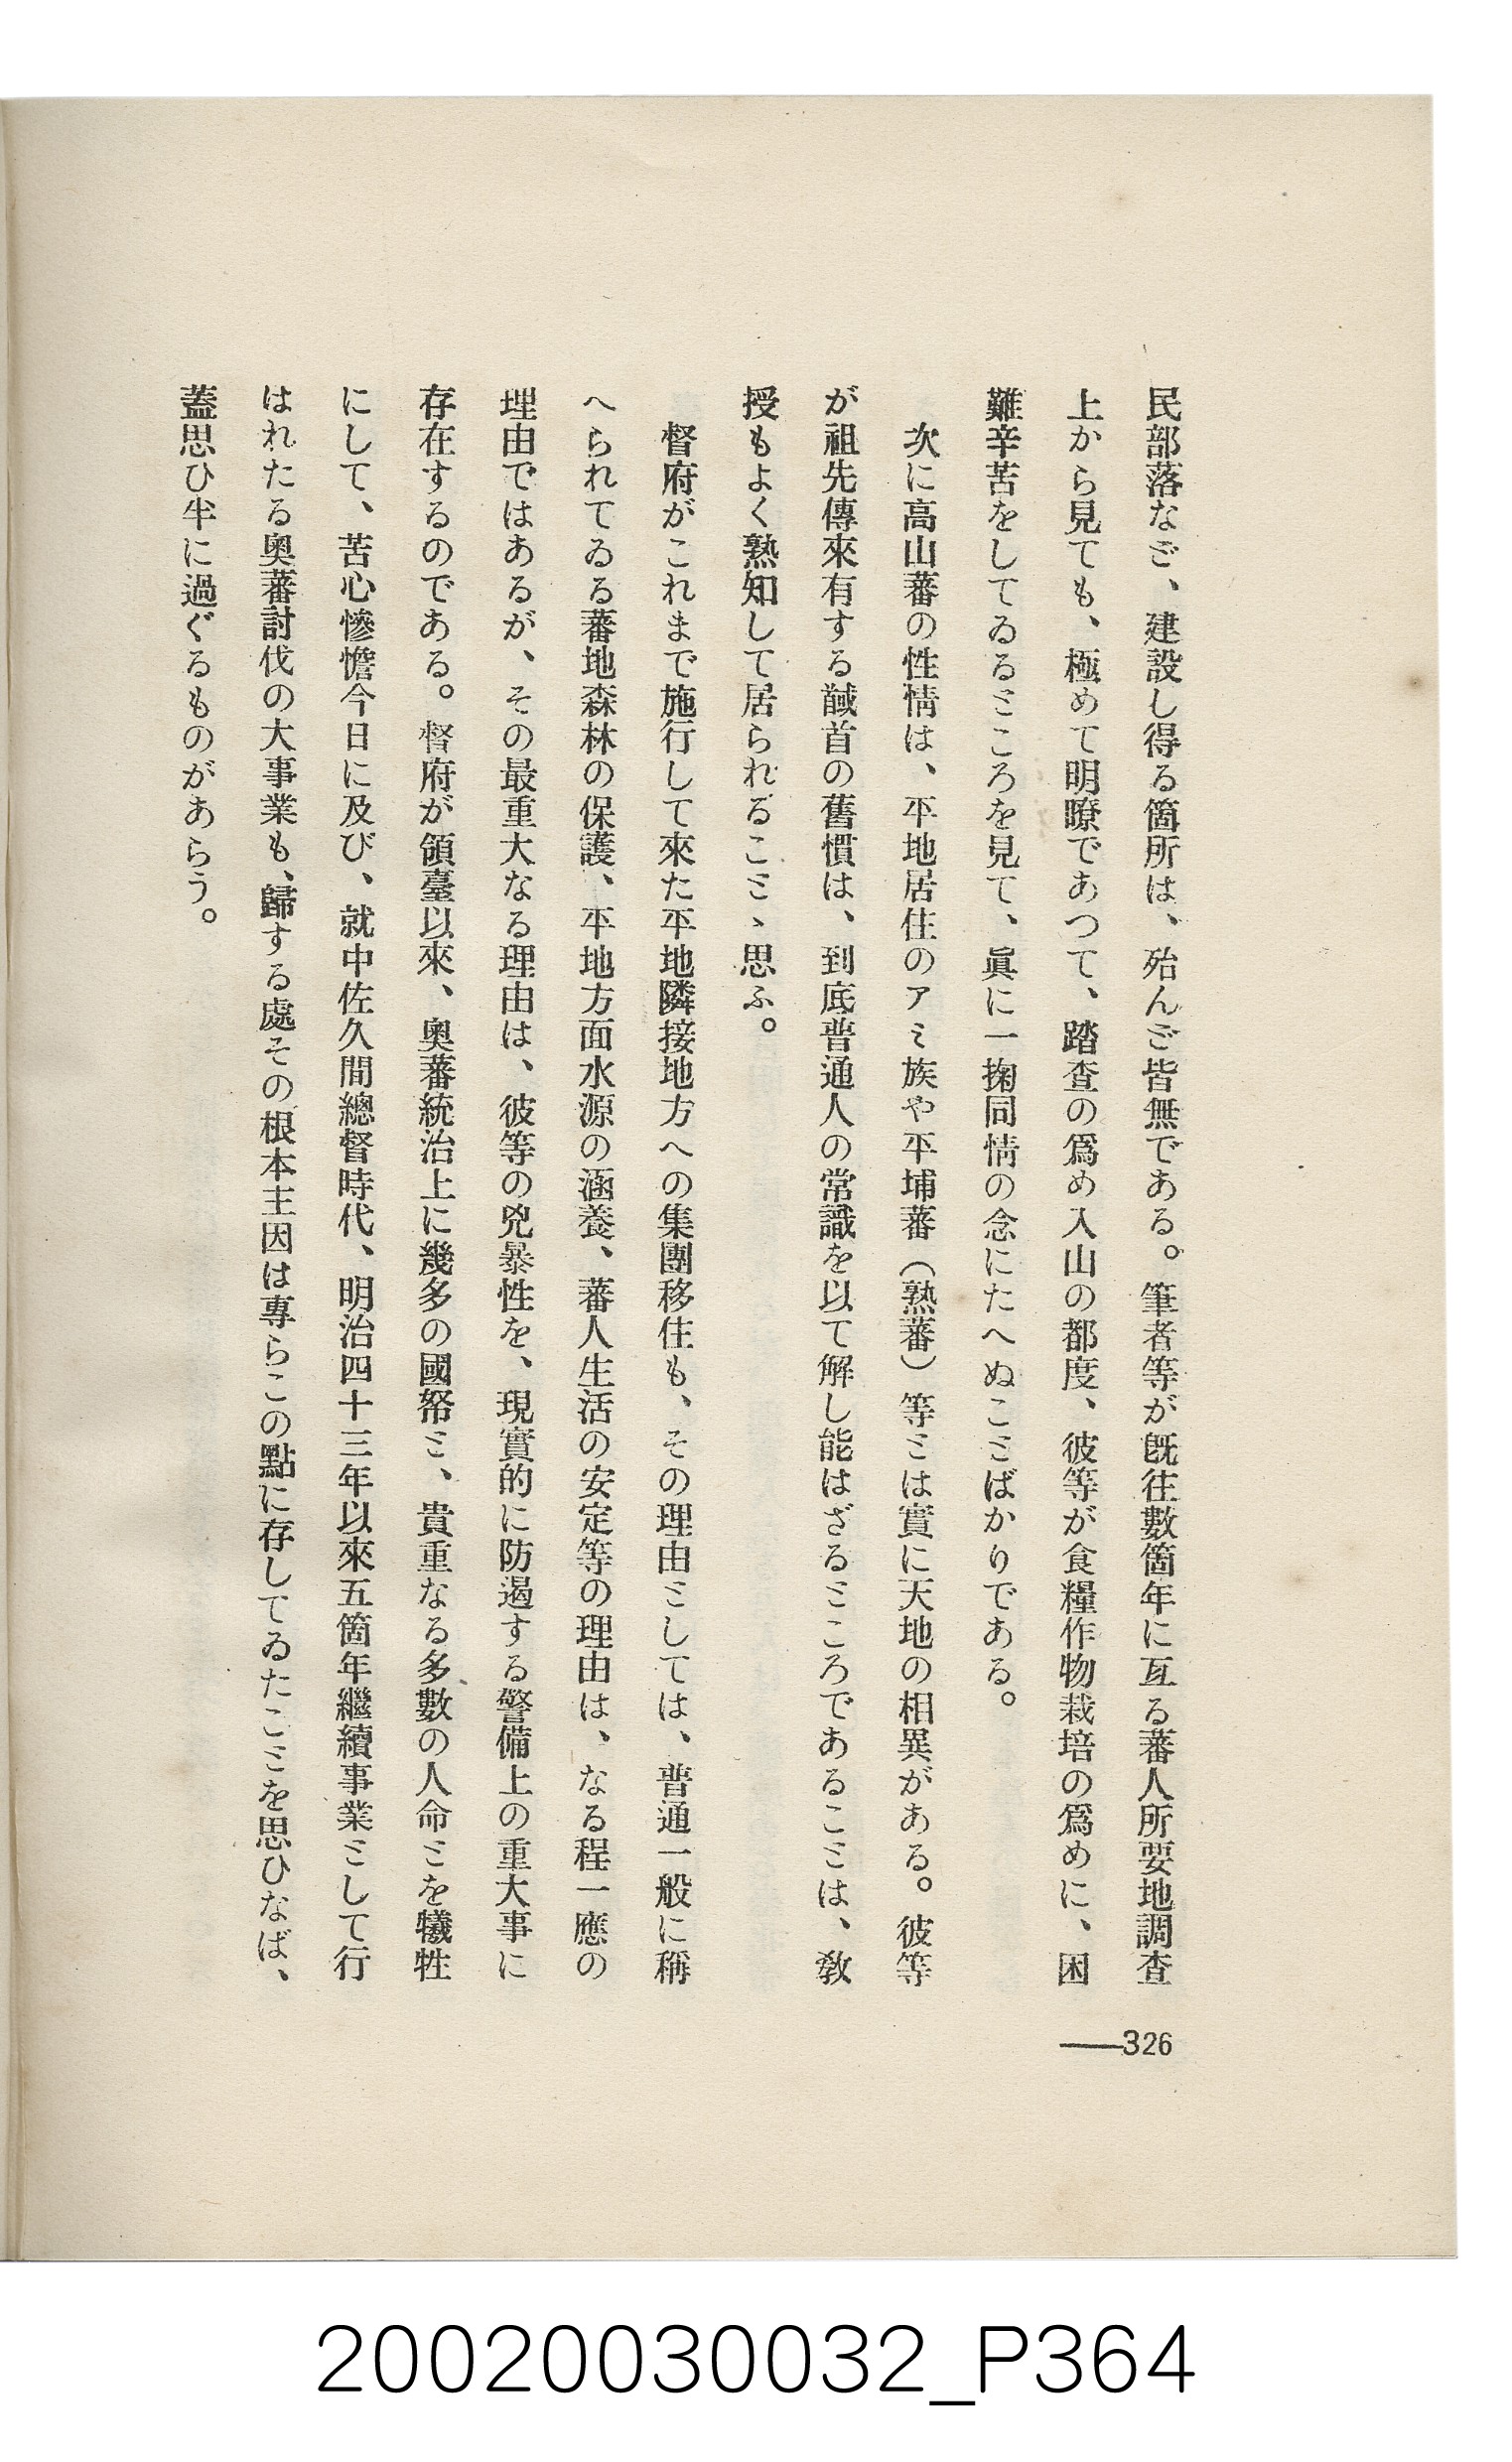 民部落など、建設し得る箇所は、殆んど皆無である。筆者等が既往數箇年に亙る蕃人所要地調査
上から見ても、極めて明瞭であつて、踏査の爲め入山の都度、彼等が食糧作物栽培の爲めに、困
難辛苦をしてゐるところを見て、眞に一掬同情の念にたへぬことばかりである。
次に高山蕃の性情は、平地居住のアミ族や平埔蕃（熟蕃）等とは實に天地の相異がある。彼等
が祖先傳來有する馘首の舊慣は、到底普通人の常識を以て解し能はざるところであることは、敎
授もよく熟知して居られることゝ思ふ。
督府がこれまで施行して來た平地隣接地方への集團移住も、その理由としては、普通一般に稱
へられてゐる蕃地森林の保護、平地方面水源の涵養、蕃人生活の安定等の理由は、なる程一應の
理由ではあるが、その最重大なる理由は、彼等の兇暴性を、現實的に防遏する警備上の重大事に
存在するのである。督府が領臺以來、奧蕃統治上に幾多の國帑と、貴重なる多數の人命とを犧牲
にして、苦心慘憺今日に及び、就中佐久間總督時代、明治四十三年以來五箇年繼續事業として行
はれたる奧蕃討伐の大事業も、歸する處その根本主因は專らこの點に存してゐたことを思ひなば、
蓋思ひ半に過ぐるものがあらう。
——326
20020030032_P364